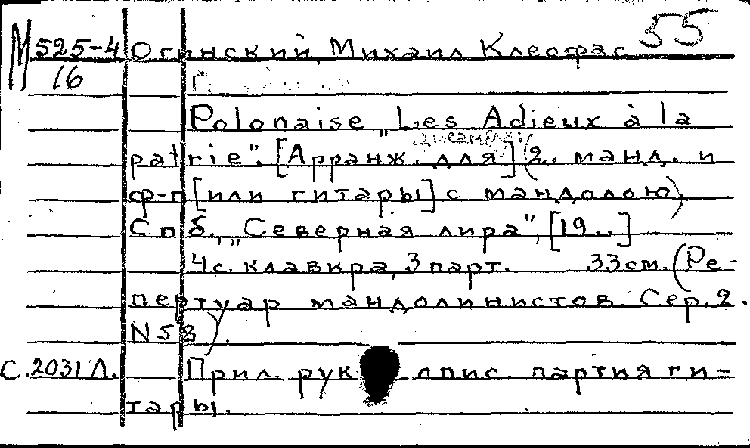 М 525-4 Огинский, Михаил Клеофас 55
16
Polonaise „Les Adieux à la
patrie". [Арранж. для] (2. манд. и
ф-п [или гитары] с мандолою)
Спб., „Северная лира", [19..]
4 с. клавира, 3 парт. 33 см. (Ре-
пертуар мандолинистов. Сер. 2.
N 58).
С. 2031 Л. Прил. рук опис. партия ги-
тары.